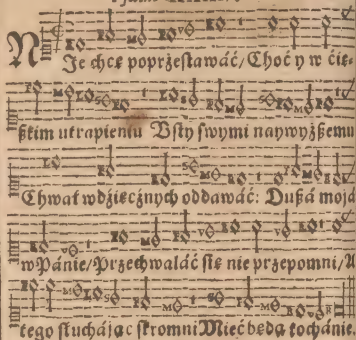 NJe chcę poprzestawáć/ Choć y w cięż-
ßkim utrapieniu Vsty swymi naywyżßemu
Chwał wdzięcznych oddawáć: Dußá mojá
w Pánie/ Przechwaláć się nie przepomni/ A
tego słuchájąc skromni Mieć będą kochánie.